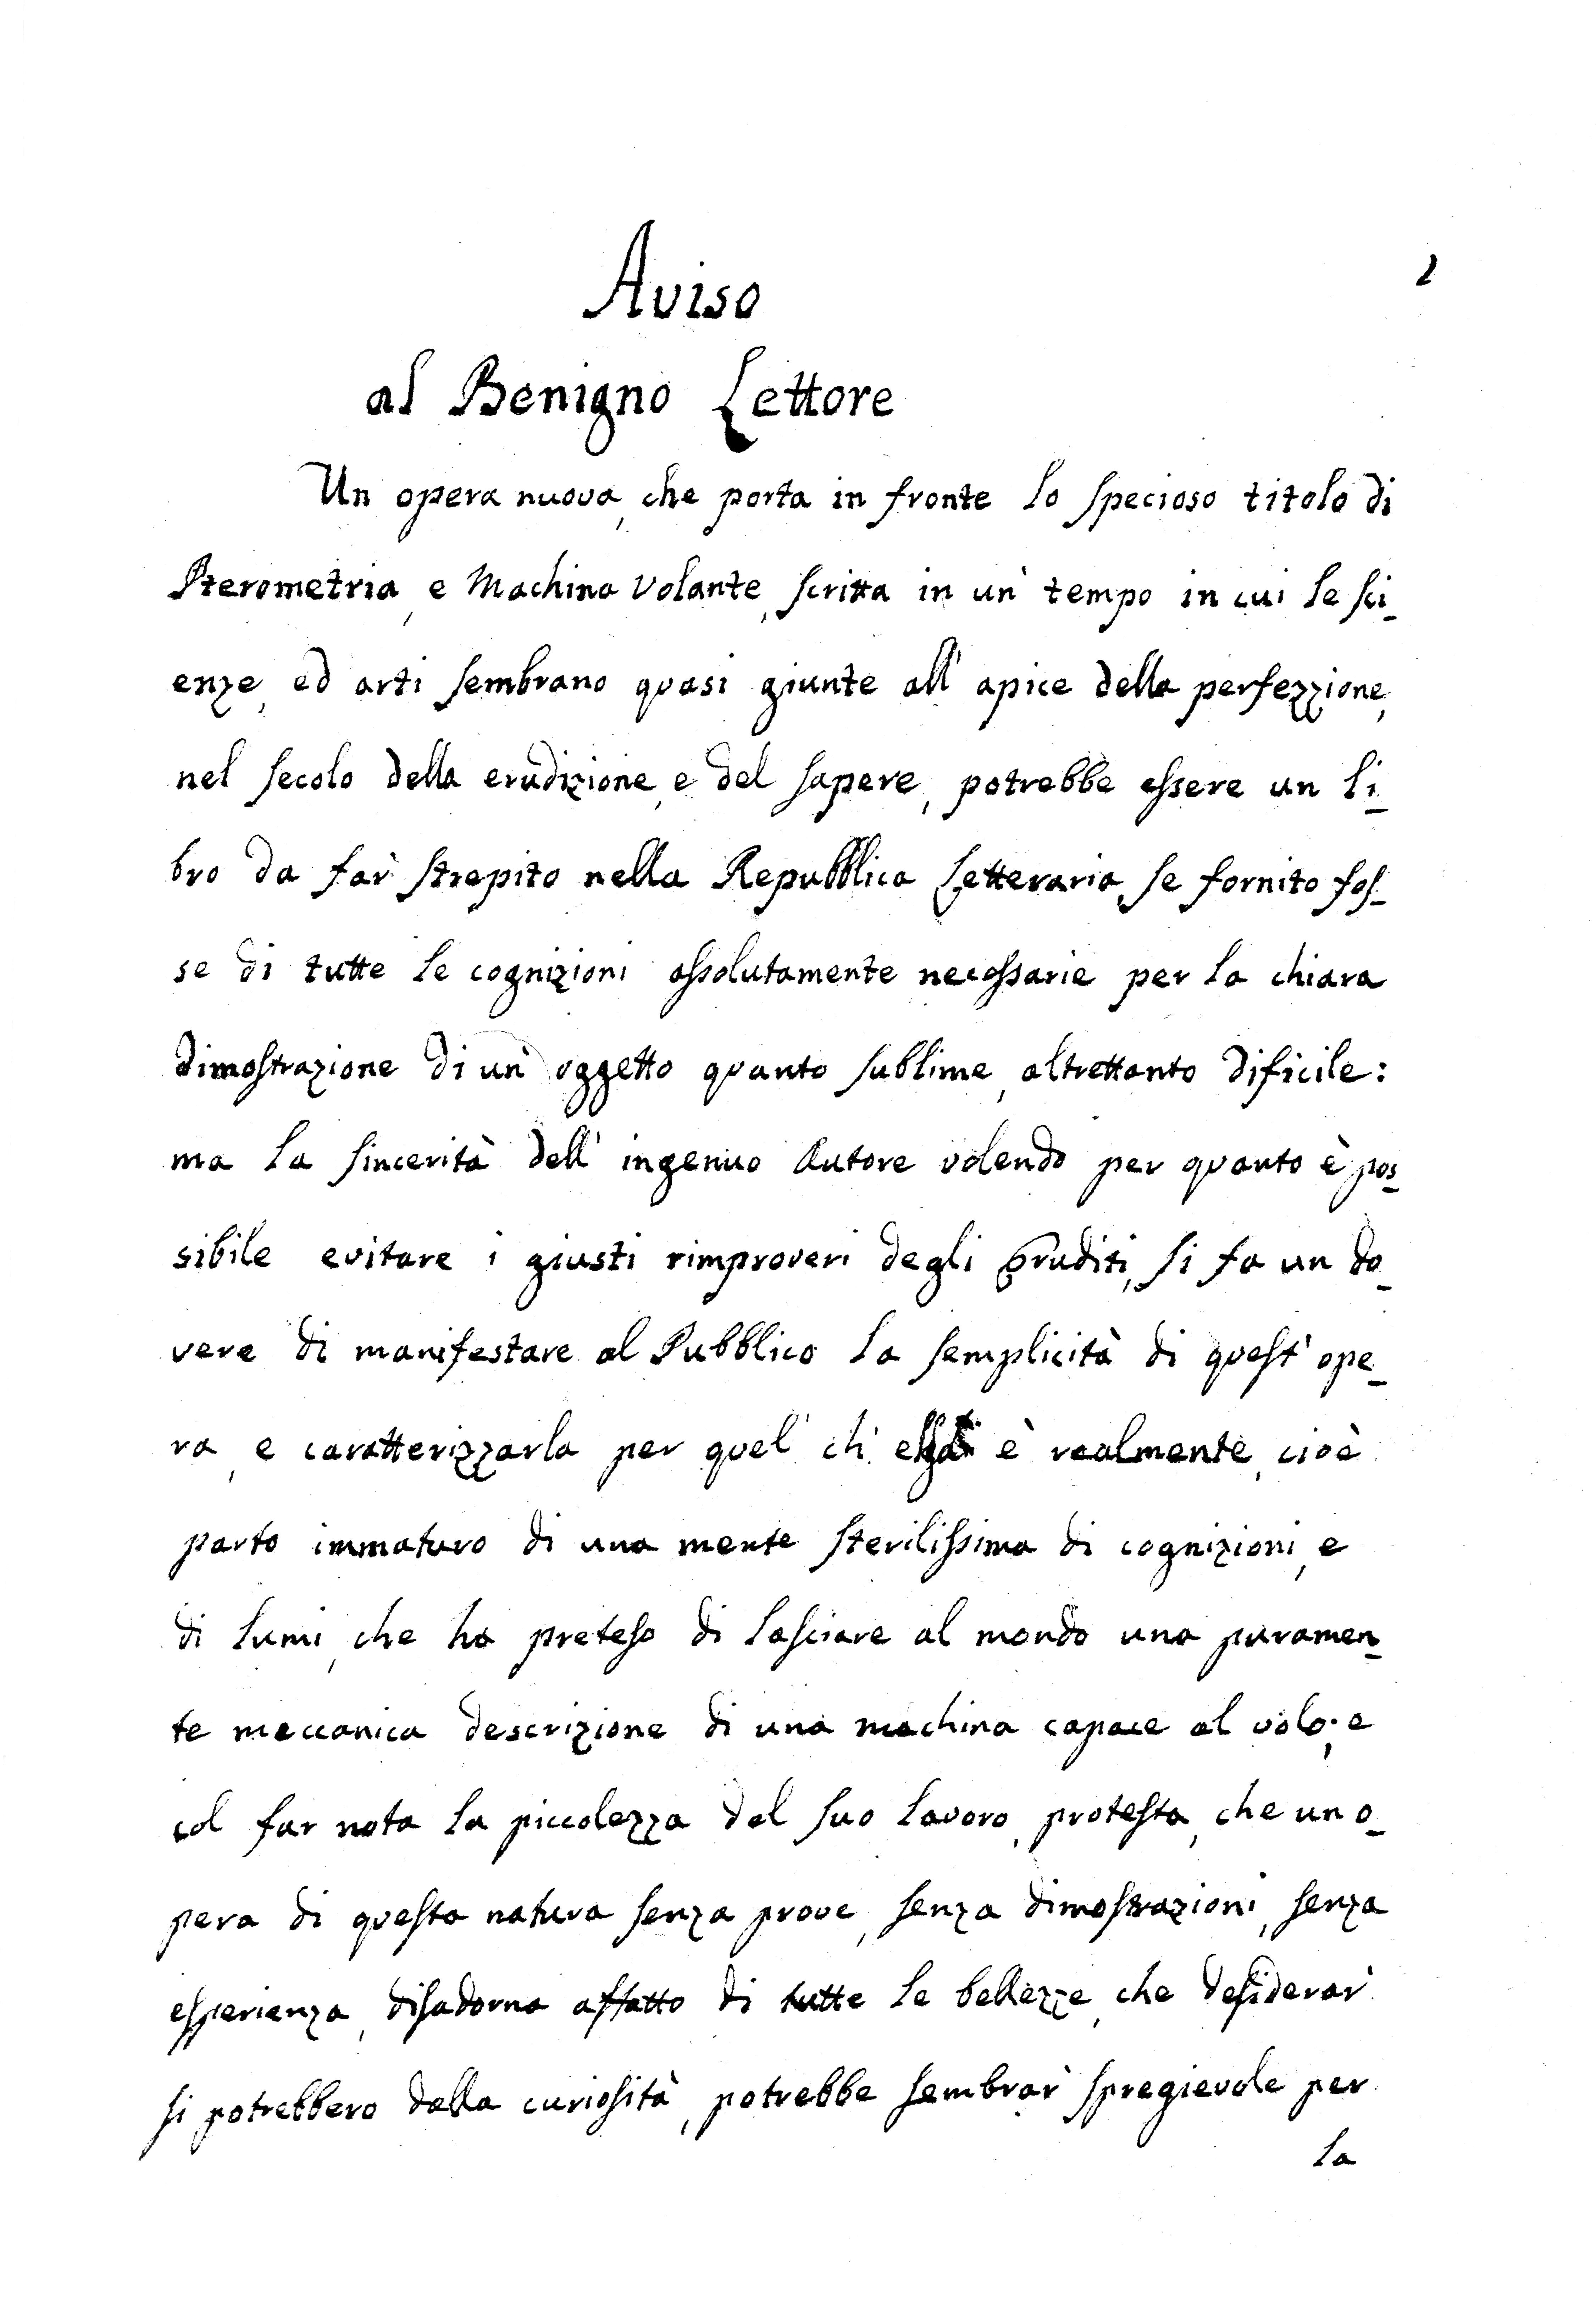 1
Aviso
al Benigno Lettore
Un opera nuova, che porta in fronte lo specioso titolo di
Pterometria, e Machina Volante, scritta in un' tempo in cui le sci-
enze, ed arti sembrano quasi giunte all' apice della perfezzione,
nel secolo della erudizione, e del sapere, potrebbe essere un li-
bro da far' strepito nella Repubblica Letteraria, se fornito fos-
se di tutte le cognizioni assolutamente necessarie per la chiara
dimostrazione di un' oggetto quanto sublime, altrettanto dificile:
ma la sincerità dell' ingenuo Autore volendo per quanto è pos-
sibile evitare i giusti rimproveri degli Eruditi, si fa un do-
vere di manifestare al Pubblico la semplicità di quest' ope-
ra, e caratterizzarla per quel' ch' è realmente, cioè
parto immaturo di una mente sterilissima di cognizioni, e
di lumi, che ha preteso di lasciare al mondo una puramen-
te meccanica descrizione di una machina capace al volo; e
col far nota la piccolezza del suo lavoro, protesta, che un o-
pera di questa natura senza prove, senza dimostrazioni, senza
esperienza, disadorna affatto di tutte le bellezze, che desiderar'
si potrebbero dalla curiosità, potrebbe sembrar' spregievole per
la